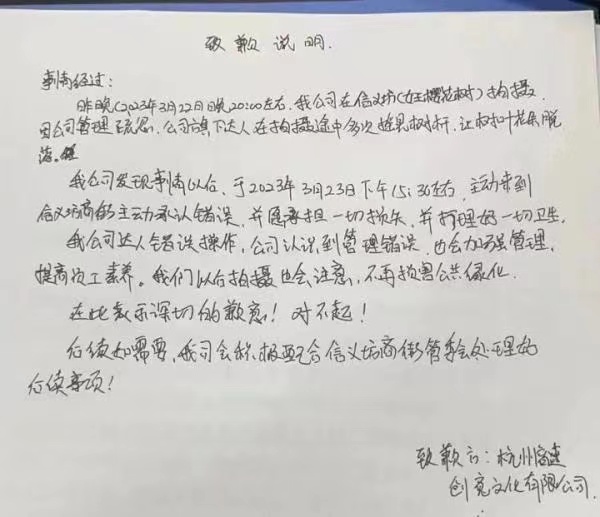 致歉说明.
事情经过:
昨晚(2023年3月22日晚20:00左右.我公司在信义坊(女王樱花树)拍摄.
因公司管理疏忽.公司旗下达人在拍摄途中多次摇晃树杆.让树叶花朵脱
落.
我公司发现事情以后.于2023年3月23日下午15:30左右,主动来到
信义坊商街主动承认错误,并愿承担一切损失,并打理好一切卫生,
我公司达人错误操作,公司认识到管理错误.也会加强管理,
提高员工素养。我们以后拍摄也会注意,不再损害公共绿化.
在此表示深切的歉意!对不起!
后续如需要,我司会积极配合信义坊商街管委会处理好
后续事项!
致歉方:杭州
创亮文化有限公司.